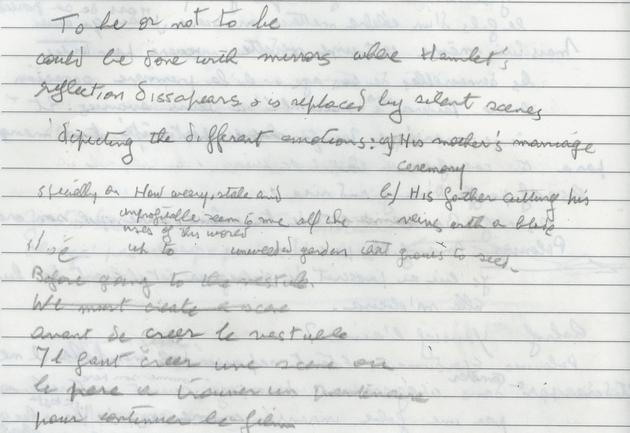 To be or not to be
could be done with mirrors where Hamlet's
reflection dissapears & is replaced by silent scenes
depicting the different emotions: a) His mother's marriage
ceremony
specially on How weary, stale and b) His father cutting his
unprofitable seem to me all the veins with a blade
uses of this world
up to unweeded garden that grows to seed.
Before going to the vestibule.
We must create a scene
avant de creer le vestibule
Il faut créer une scene où
le pere a trouver un partenaire
pour continuer le